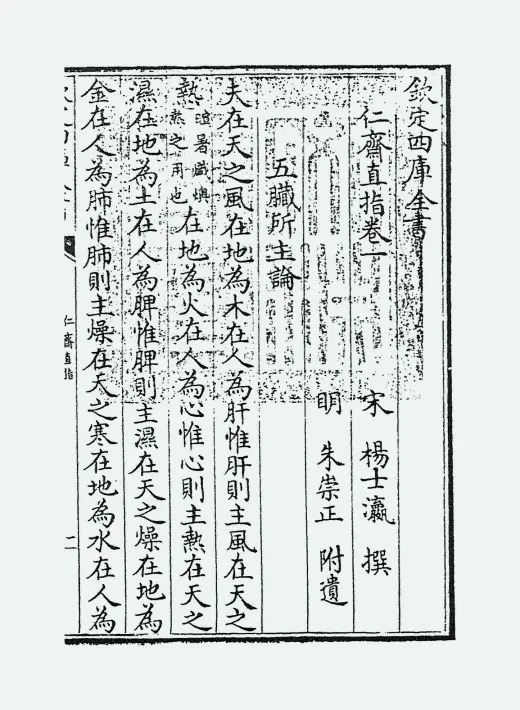 欽定四庫全書
仁齋直指卷一
宋 楊士瀛 撰
明 朱崇正 附遺
五臟所主論
夫在天之風在地為木在人為肝惟肝則主風在天之
熱暄暑鬱燠熱之用也在地為火在人為心惟心則主熱在天之
濕在地為土在人為脾惟脾則主濕在天之燥在地為
金在人為肺惟肺則主燥在天之寒在地為水在人為
仁齋直指
二